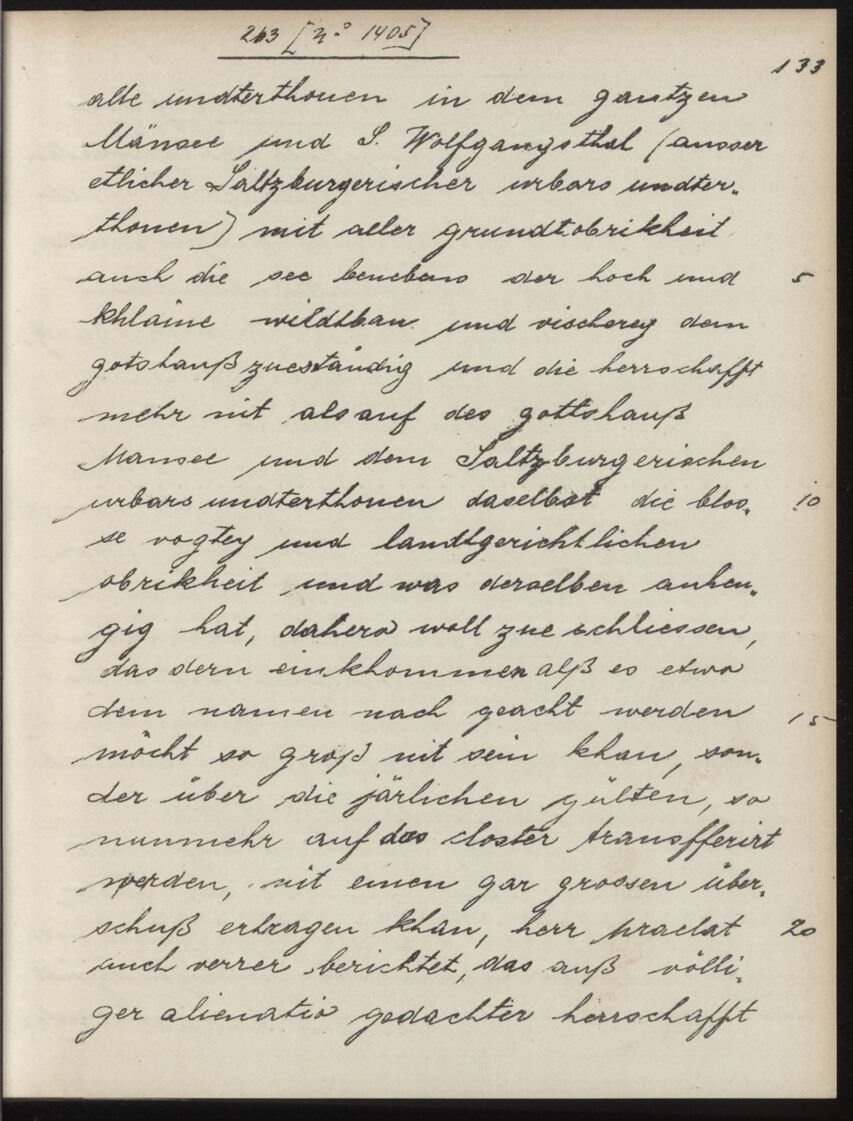 263 [N.° 1405]
133
alle undterthonen in dem gantzen
Mänsee und S. Wolfgangsthal (ausser
etlicher Saltzburgerischer urbars undter„
thonen) mit aller grundtobrikheit
auch die see benebens der hoch und 5
khlaine wildtban und vischerey dem
gotshauß zueständig und die herrschafft
mehr nit als auf des gottshauß
Mansee und dem Saltzburgerischen
urbars undterthonen daselbst die blos„ 10
se vogtey und landtgerichtlichen
obrikheit und was derselben anhen„
gig hat, dahero woll zue schliessen,
das dern einkhommen alß es etwo
dem namen nach geacht werden 15
möcht so groß nit sein khan, son„
der über die järlichen gülten, so
nunmehr auf das closter transfferirt
werden, nit einen gar grossen über„
schuß ertragen khan, herr praelat 20
auch verrer berichtet, das auß völli„
ger alienatio gedachter herrschafft